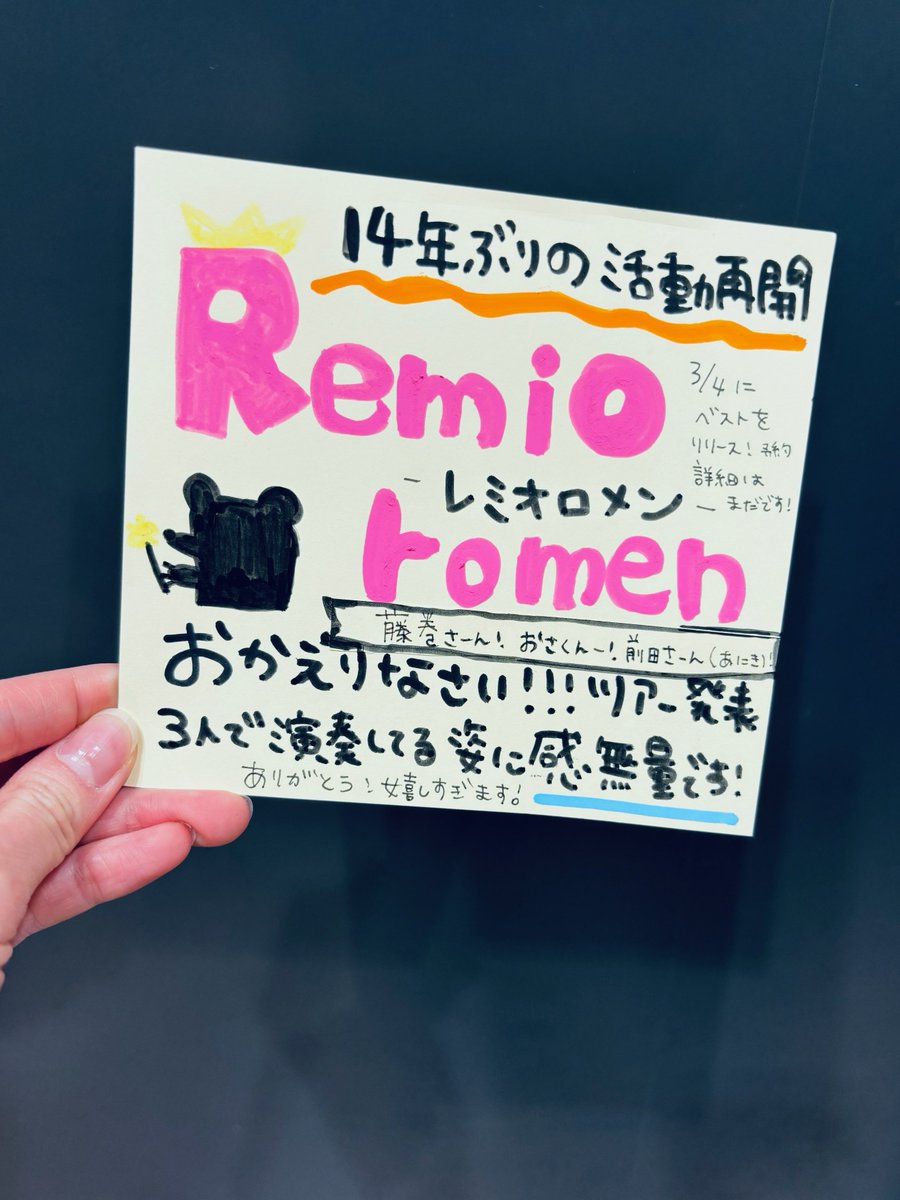 14年ぶりの活動再開
Remio
3/4に
ベストを
リリース!予約
詳細は
まだです!
-レミオロメン-
romen
藤巻さーん! おさくんー! 前田さーん(あにき)!
おかえりなさい!!!ツアー発表
3人で演奏してる姿に感無量です!
ありがとう!嬉しすぎます!